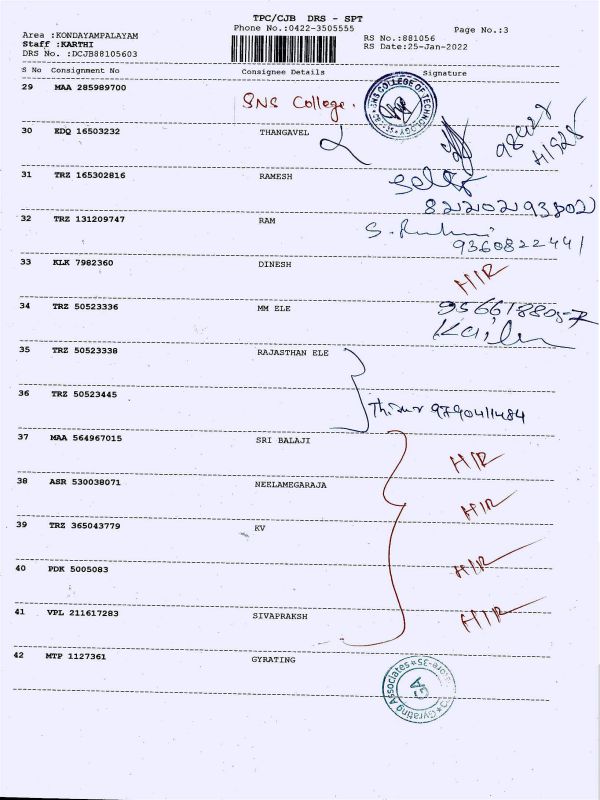 TPC/CJB DRS - SPT
Phone No.:0422-3505555
Page No.:3
Area :KONDAYAMPALAYAM
RS No.:881056
Staff :KARTHI
RS Date:25-Jan-2022
DRS No. :DCJB88105603
S No Consignment No Consignee Details Signature
29 MAA 285989700 SNS College.
SNS COLLEGE OF TECHNOLOGY
30 EDQ 16503232 THANGAVEL
31 TRZ 165302816 RAMESH
32 TRZ 131209747 RAM
9360822441
33 KLK 7982360 DINESH HIR
34 TRZ 50523336 MM ELE
35 TRZ 50523338 RAJASTHAN ELE
36 TRZ 50523445
9790411484
37 MAA 564967015 SRI BALAJI HIR
38 ASR 530038071 NEELAMEGARAJA HIR
39 TRZ 365043779 KV
40 PDK 5005083 HIR
41 VPL 211617283 SIVAPRAKSH HIR
42 MTP 1127361 GYRATING
Gyrating Associates